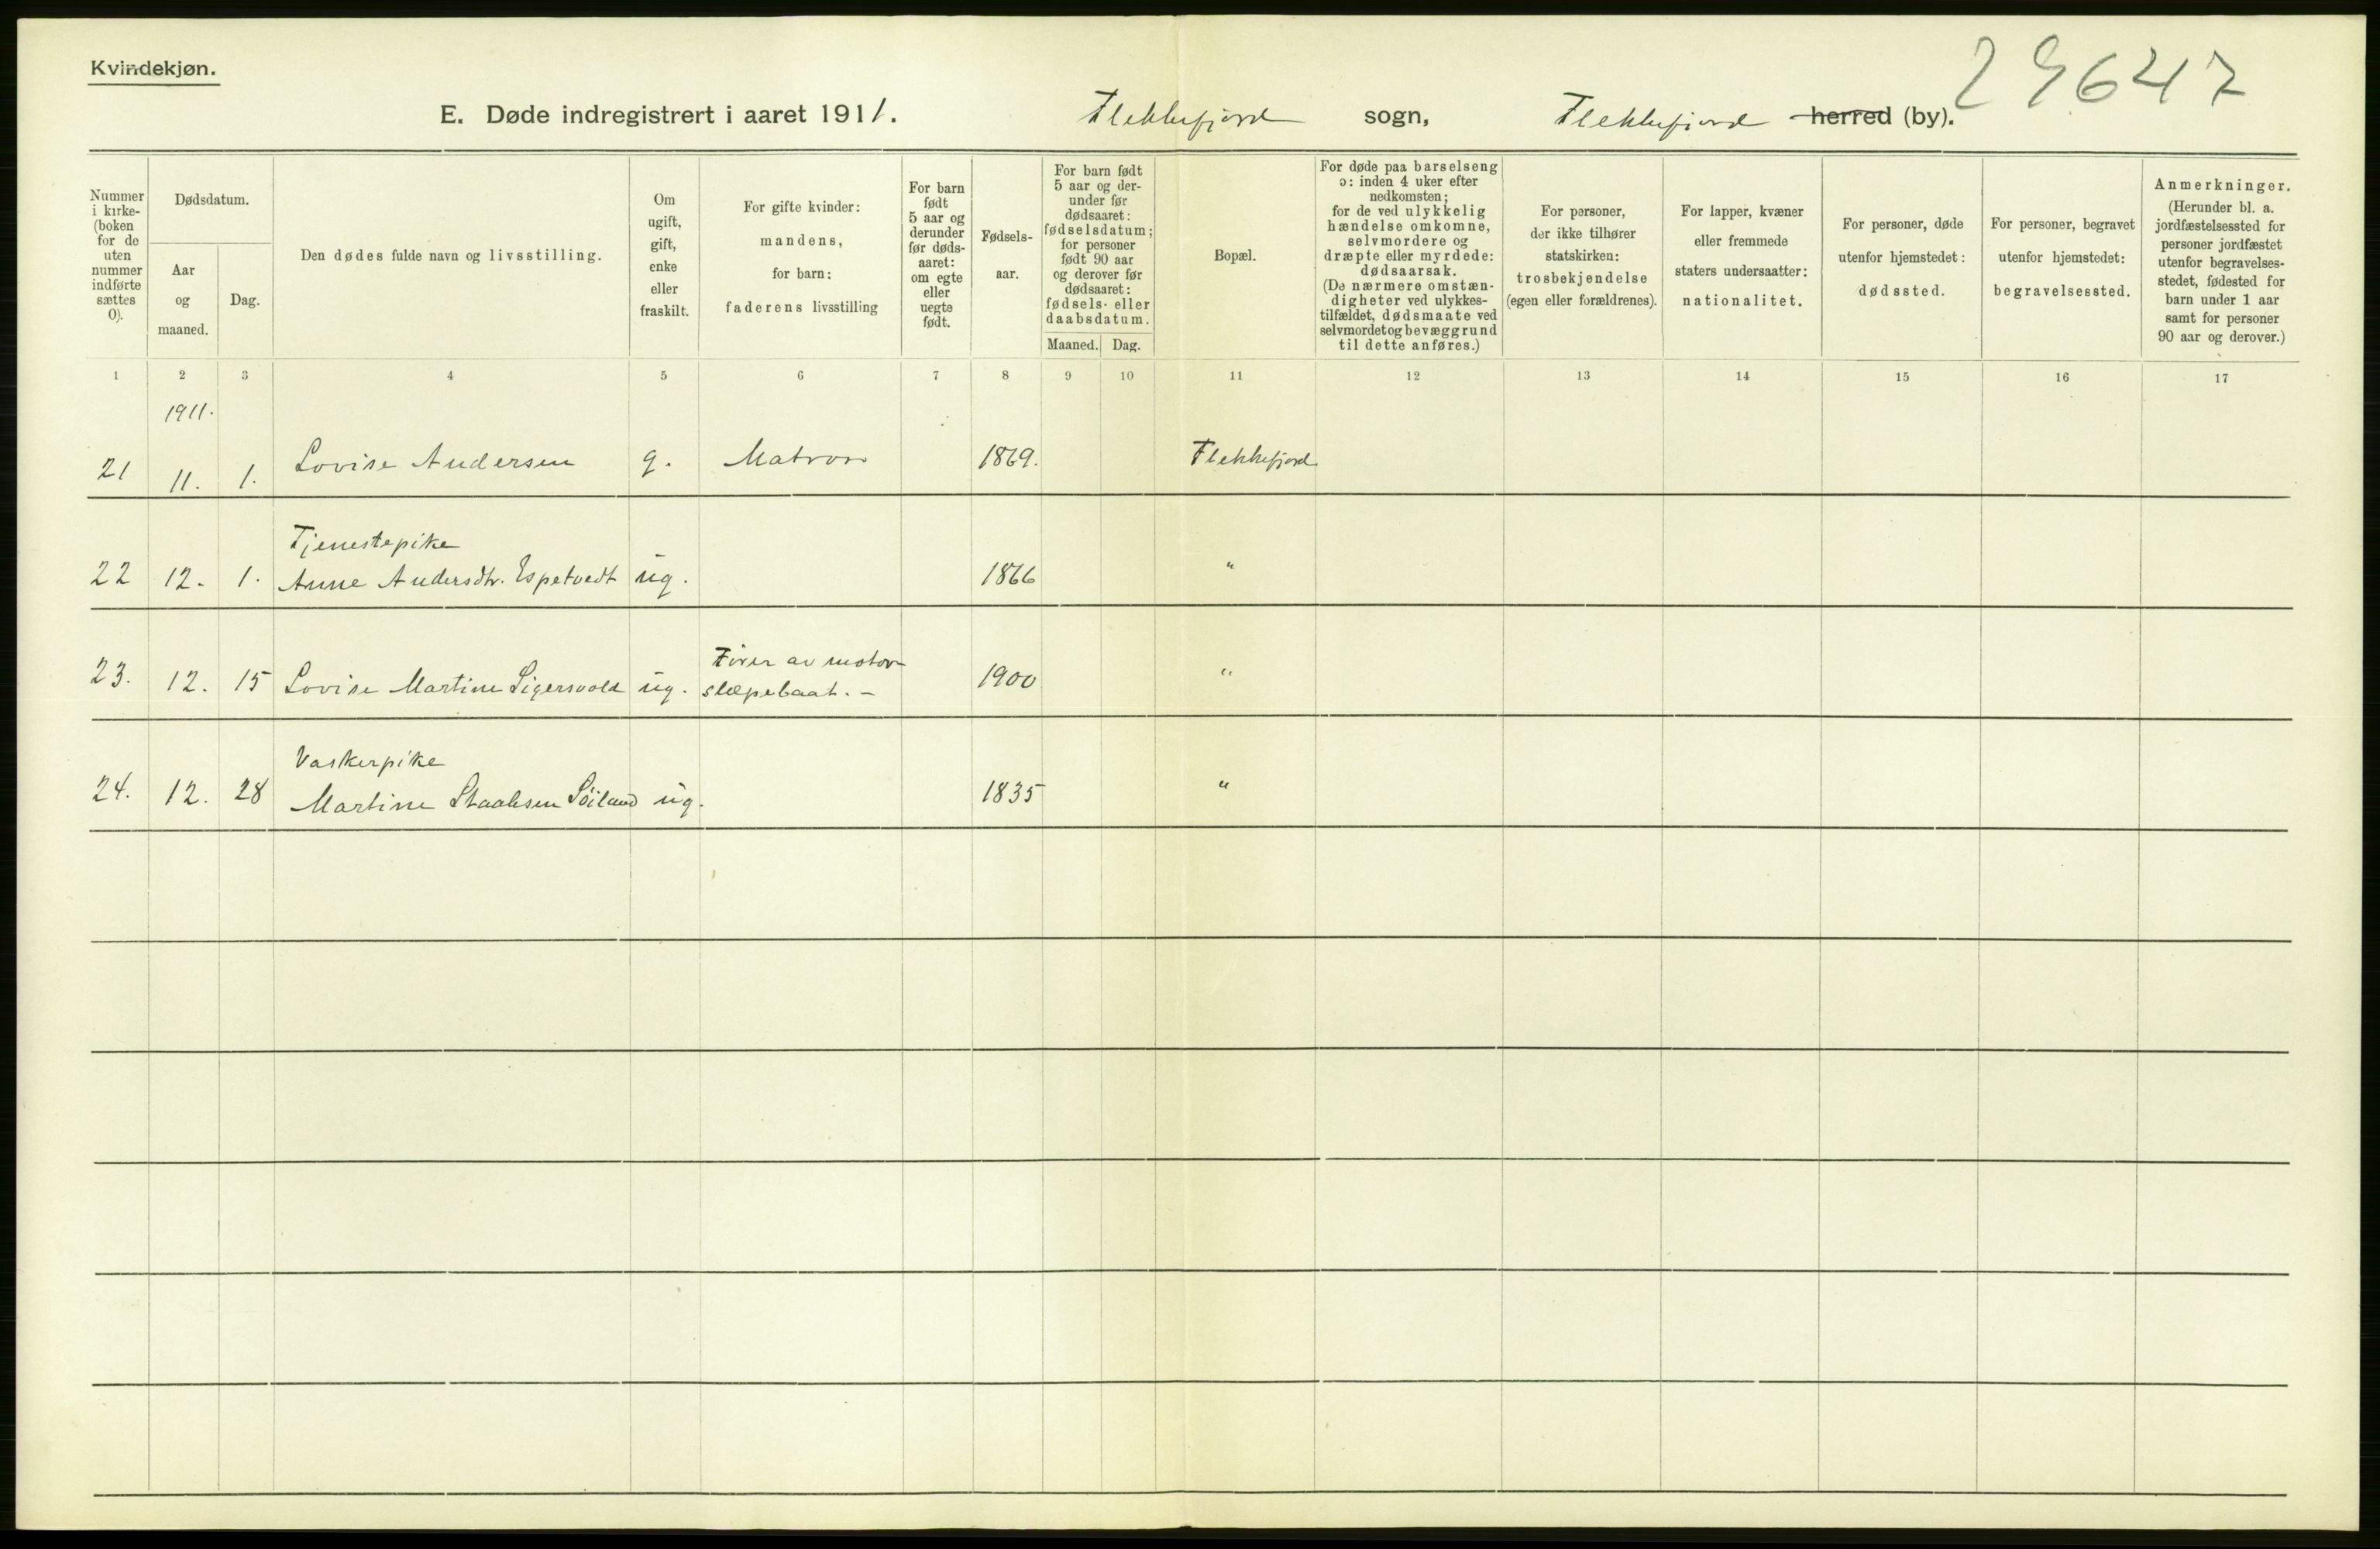 Kvindekjøn.
29647
E. Døde indregistrert i aaret 1911. Flekkefjord sogn, Flekkefjord herred (by).
Nummer i kirke-(boken for de uten nummer indførte sættes 0).
Dødsdatum.
Aar og maaned.
Dag.
Den dødes fulde navn og livsstilling.
Om ugift, gift, enke eller fraskilt.
For gifte kvinder: mandens, for barn: faderens livsstilling
For barn født 5 aar og derunder før dødsaaret: om egte eller uegte født.
Fødsels-aar.
For barn født 5 aar og derunder før dødsaaret: fødselsdatum; for personer født 90 aar og derover før dødsaaret: fødsels- eller daabsdatum.
Maaned. Dag.
Bopæl.
For døde paa barselseng ɔ: inden 4 uker efter nedkomsten; for de ved ulykkelig hændelse omkomne, selvmordere og dræpte eller myrdede: dødsaarsak. (De nærmere omstændigheter ved ulykkestilfældet, dødsmaate ved selvmordet og bevæggrund til dette anføres.)
For personer, der ikke tilhører statskirken: trosbekjendelse (egen eller forældrenes).
For lapper, kvæner eller fremmede staters undersaatter: nationalitet.
For personer, døde utenfor hjemstedet: dødssted.
For personer, begravet utenfor hjemstedet: begravelsessted.
Anmerkninger. (Herunder bl. a. jordfæstelsessted for personer jordfæstet utenfor begravelsesstedet, fødested for barn under 1 aar samt for personer 90 aar og derover.)
1 2 3 4 5 6 7 8 9 10 11 12 13 14 15 16 17
1911.
21 11. 1. Lovise Andersen g. Matros 1869. Flekkefjord
Tjenestepike
22 12. 1. Anne Andersdtr. Espetvedt ug. 1866 "
Fører av motor-
23. 12. 15 Lovise Martine Sigersvold ug. slæpebaat. - 1900 "
Vaskerpike
24. 12. 28 Martine Staalesen Söiland ug. 1835 "